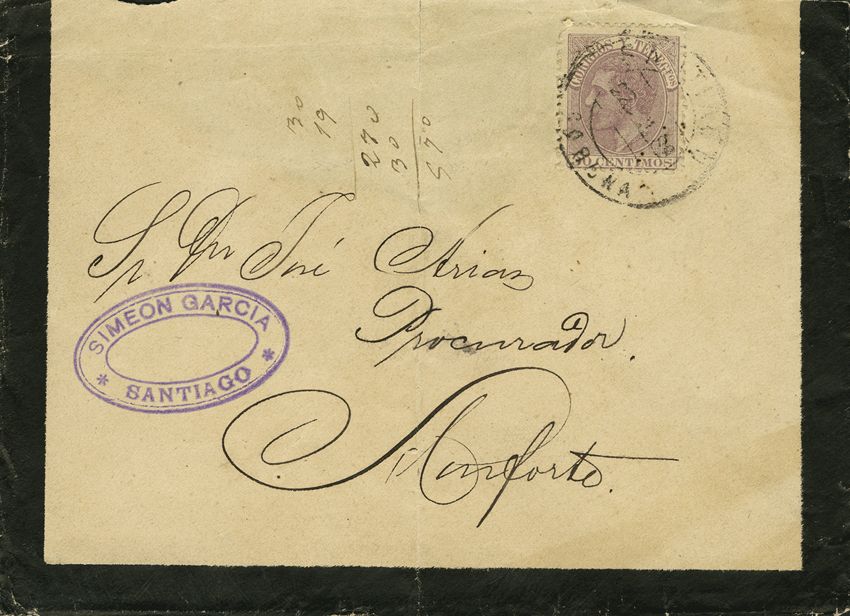 CORREOS Y TELEGFOS
CENTIMOS
30
19
270
30
570
Sr Dn José Arias
Procurador.
Monforte.
SIMEON GARCIA
* SANTIAGO *